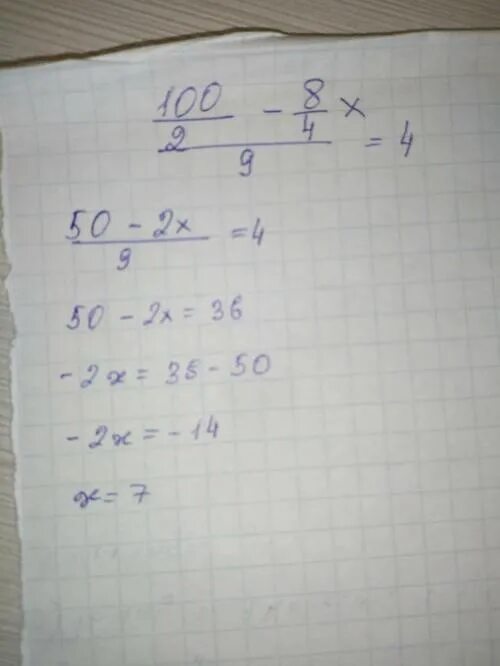 100/2 - 8/4 x
9 = 4
50 - 2x
9 = 4
50 - 2x = 36
-2x = 35 - 50
-2x = -14
x = 7